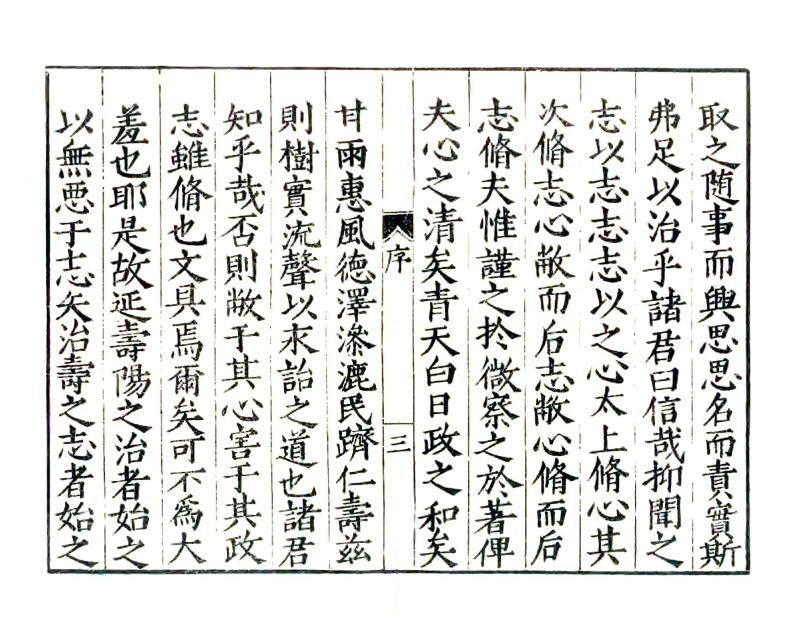 取之随事而興思思名而責實斯
弗足以治乎諸君曰信哉抑聞之
志以志志志以之心太上脩心其
次脩志心敝而后志敝心脩而后
志脩夫惟謹之扵微察之於著俾
夫心之清矣青天白日政之和矣
序
三
甘雨惠風德澤滲漉民躋仁壽兹
則樹實流聲以永詒之道也諸君
知乎哉否則敝于其心害于其政
志雖脩也文具焉爾矣可不為大
羞也耶是故延壽陽之治者始之
以無恶于志矣治壽之志者始之